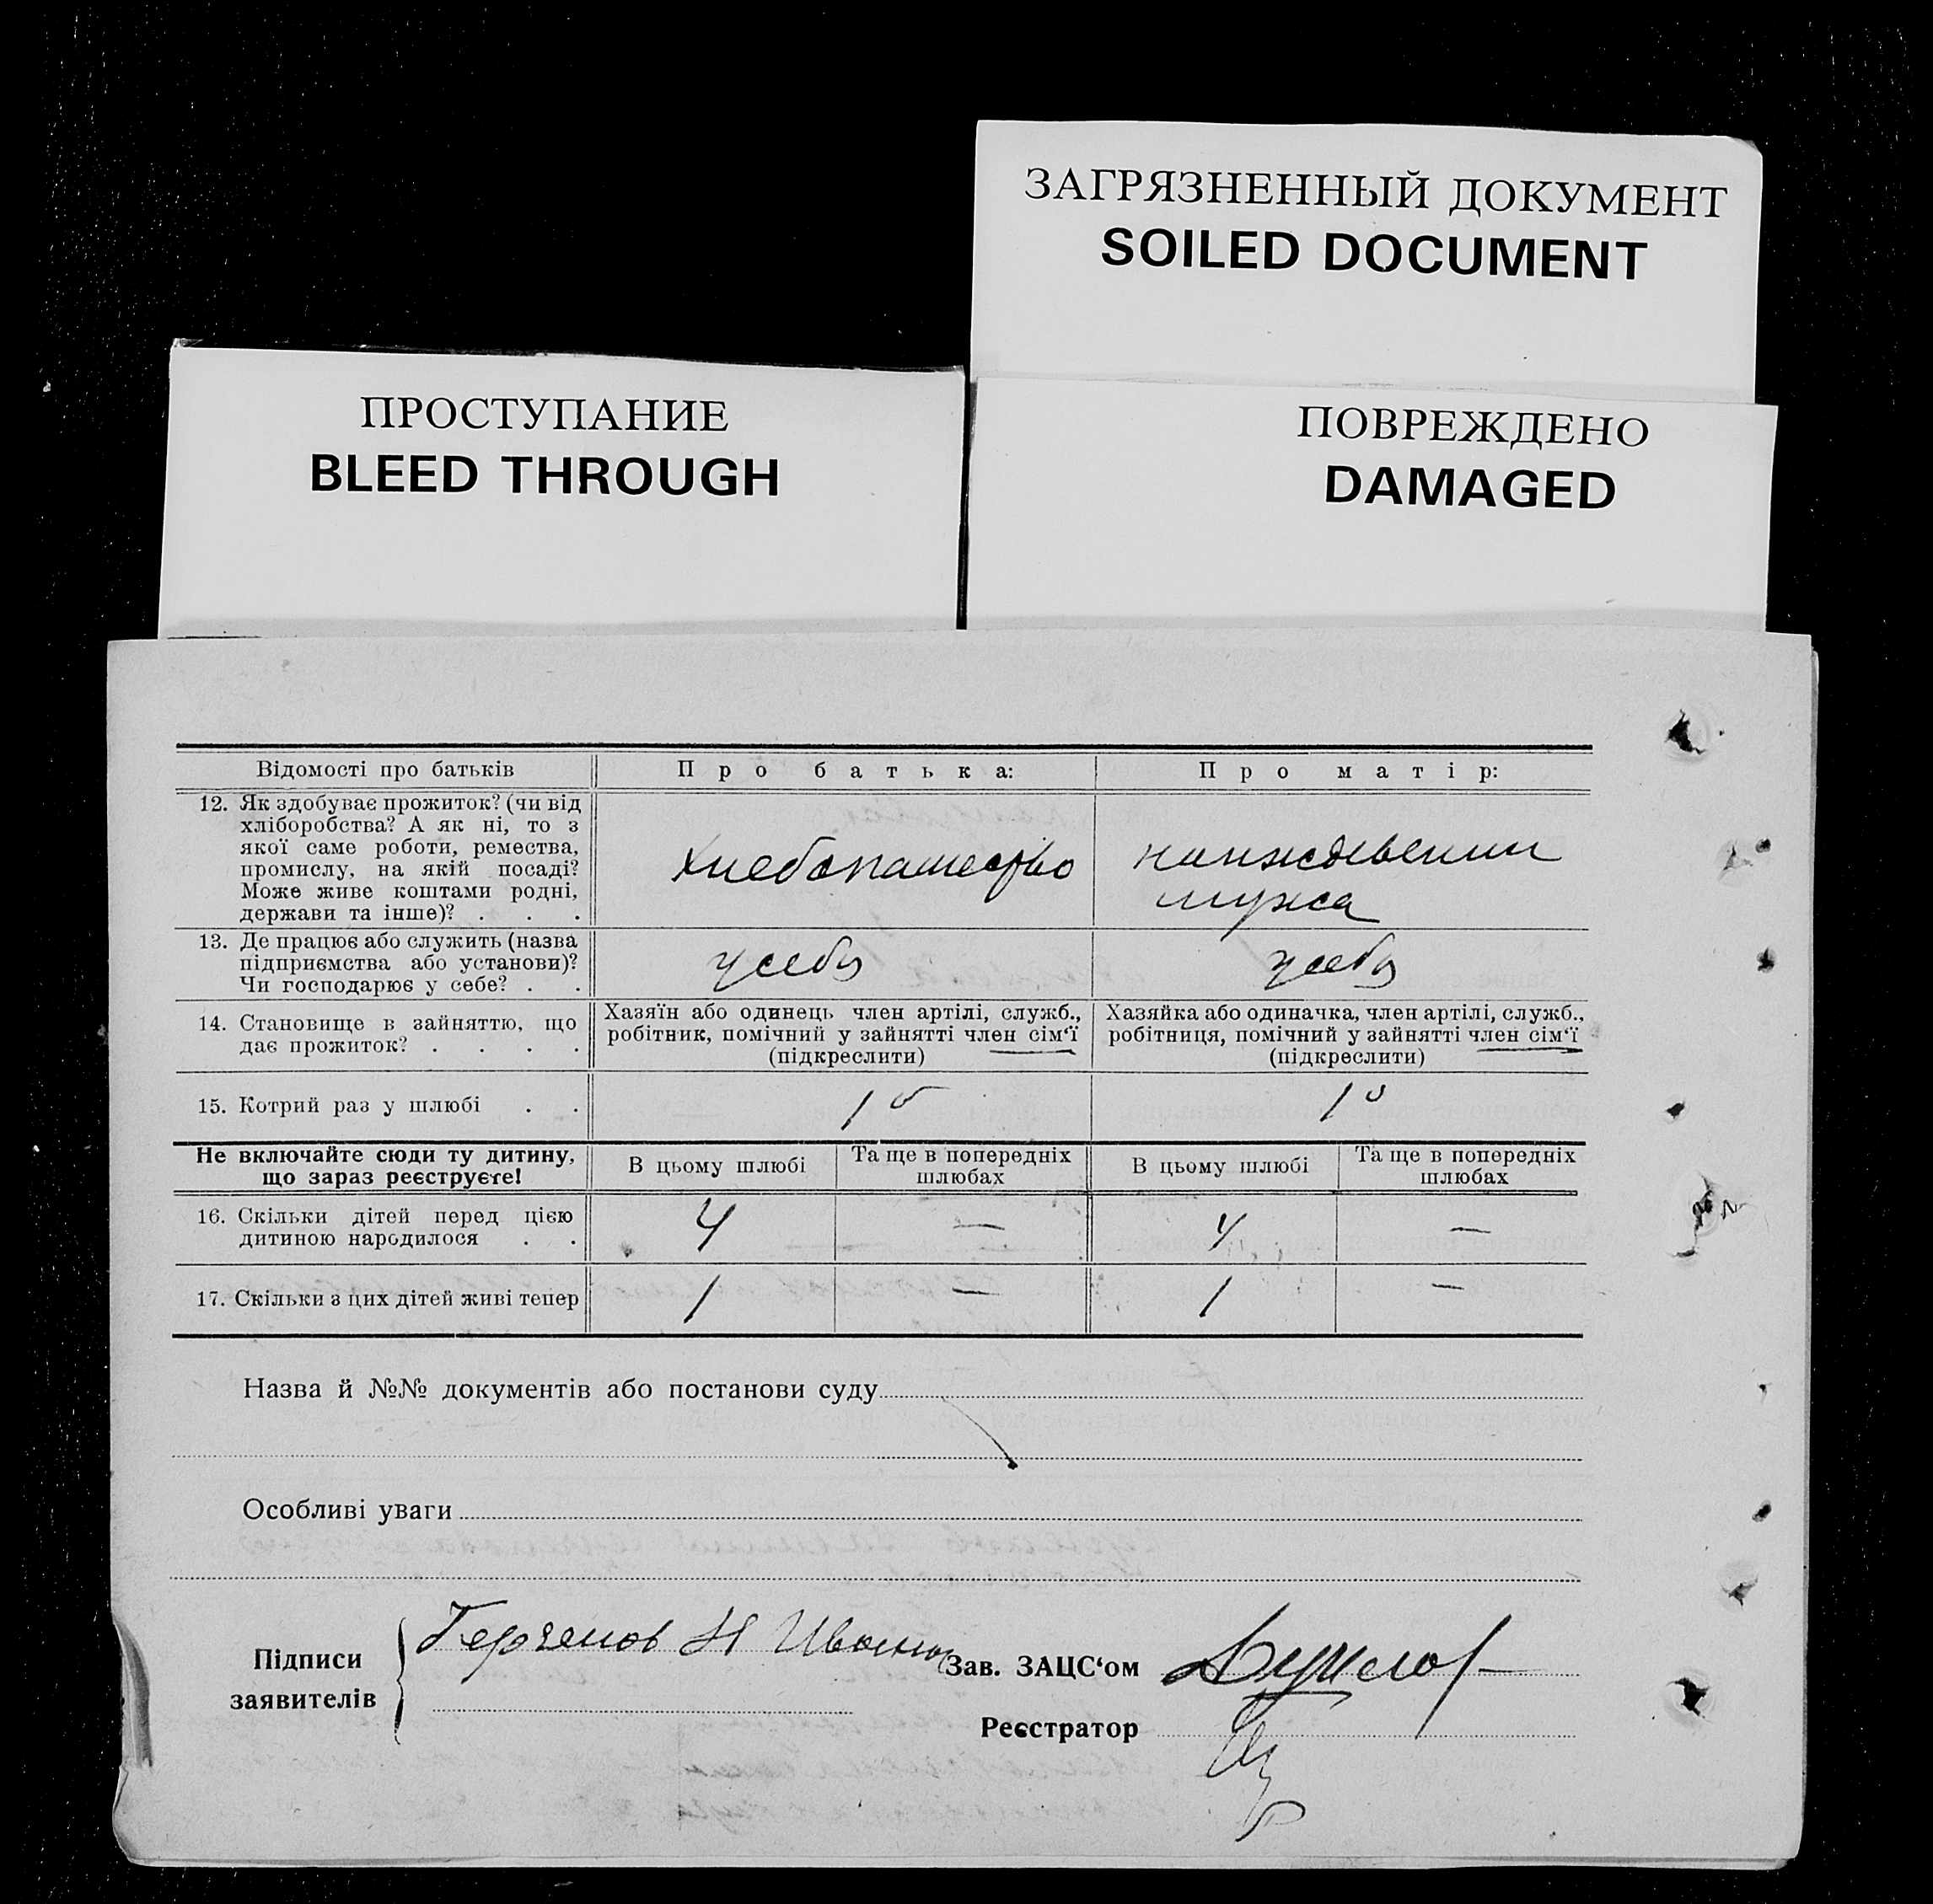 ЗАГРЯЗНЕННЫЙ ДОКУМЕНТ
SOILED DOCUMENT
ПРОСТУПАНИЕ
BLEED THROUGH
ПОВРЕЖДЕНО
DAMAGED
Відомості про батьків
Про батька:
Про матір:
12. Як здобуває прожиток? (чи від
хліборобства? А як ні, то з
якої саме роботи, ремества,
промислу, на якій посаді?
Може живе коштами родні,
держави та інше)? . . .
хлебопашество
на иждевении
мужа
13. Де працює або служить (назва
підприємства або установи)?
Чи господарює у себе? . .
у себя
у себя
14. Становище в зайняттю, що
дає прожиток? . . . .
Хазяїн або одинець член артілі, служб.,
робітник, помічний у зайнятті член сім‘ї
(підкреслити)
Хазяйка або одиначка, член артілі, служб.,
робітниця, помічний у зайнятті член сім‘ї
(підкреслити)
15. Котрий раз у шлюбі . .
1й
1й
Не включайте сюди ту дитину,
що зараз реєструєте!
В цьому шлюбі
Та ще в попередніх
шлюбах
В цьому шлюбі
Та ще в попередніх
шлюбах
16. Скільки дітей перед цією
дитиною народилося . .
4
—
4
—
17. Скільки з цих дітей живі тепер
1
—
1
—
Назва й №№ документів або постанови суду
Особливі уваги
Підписи
заявителів
Зав. ЗАЦС‘ом
Реєстратор